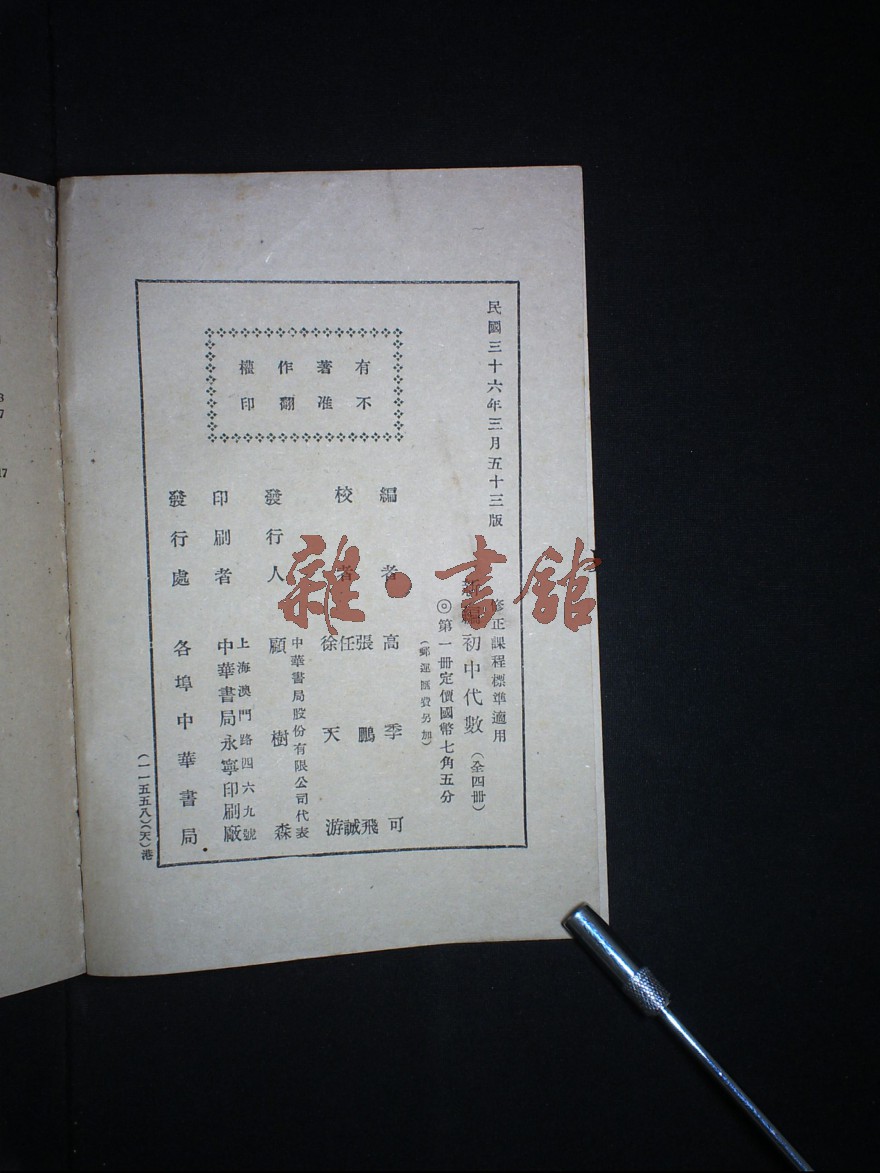 民國三十六年三月五十三版
修正課程標準適用
新編初中代數(全四冊)
◎第一冊定價國幣七角五分
(郵運匯費另加)
有著作權
不准翻印
編者 高季可
校者 張鵬飛
任誠
徐天游
發行人 中華書局股份有限公司代表
顧樹森
印刷者 上海澳門路四六九號
中華書局永寧印刷廠
發行處 各埠中華書局
(一一五五八)(天)港
雜·書館
3
7
17